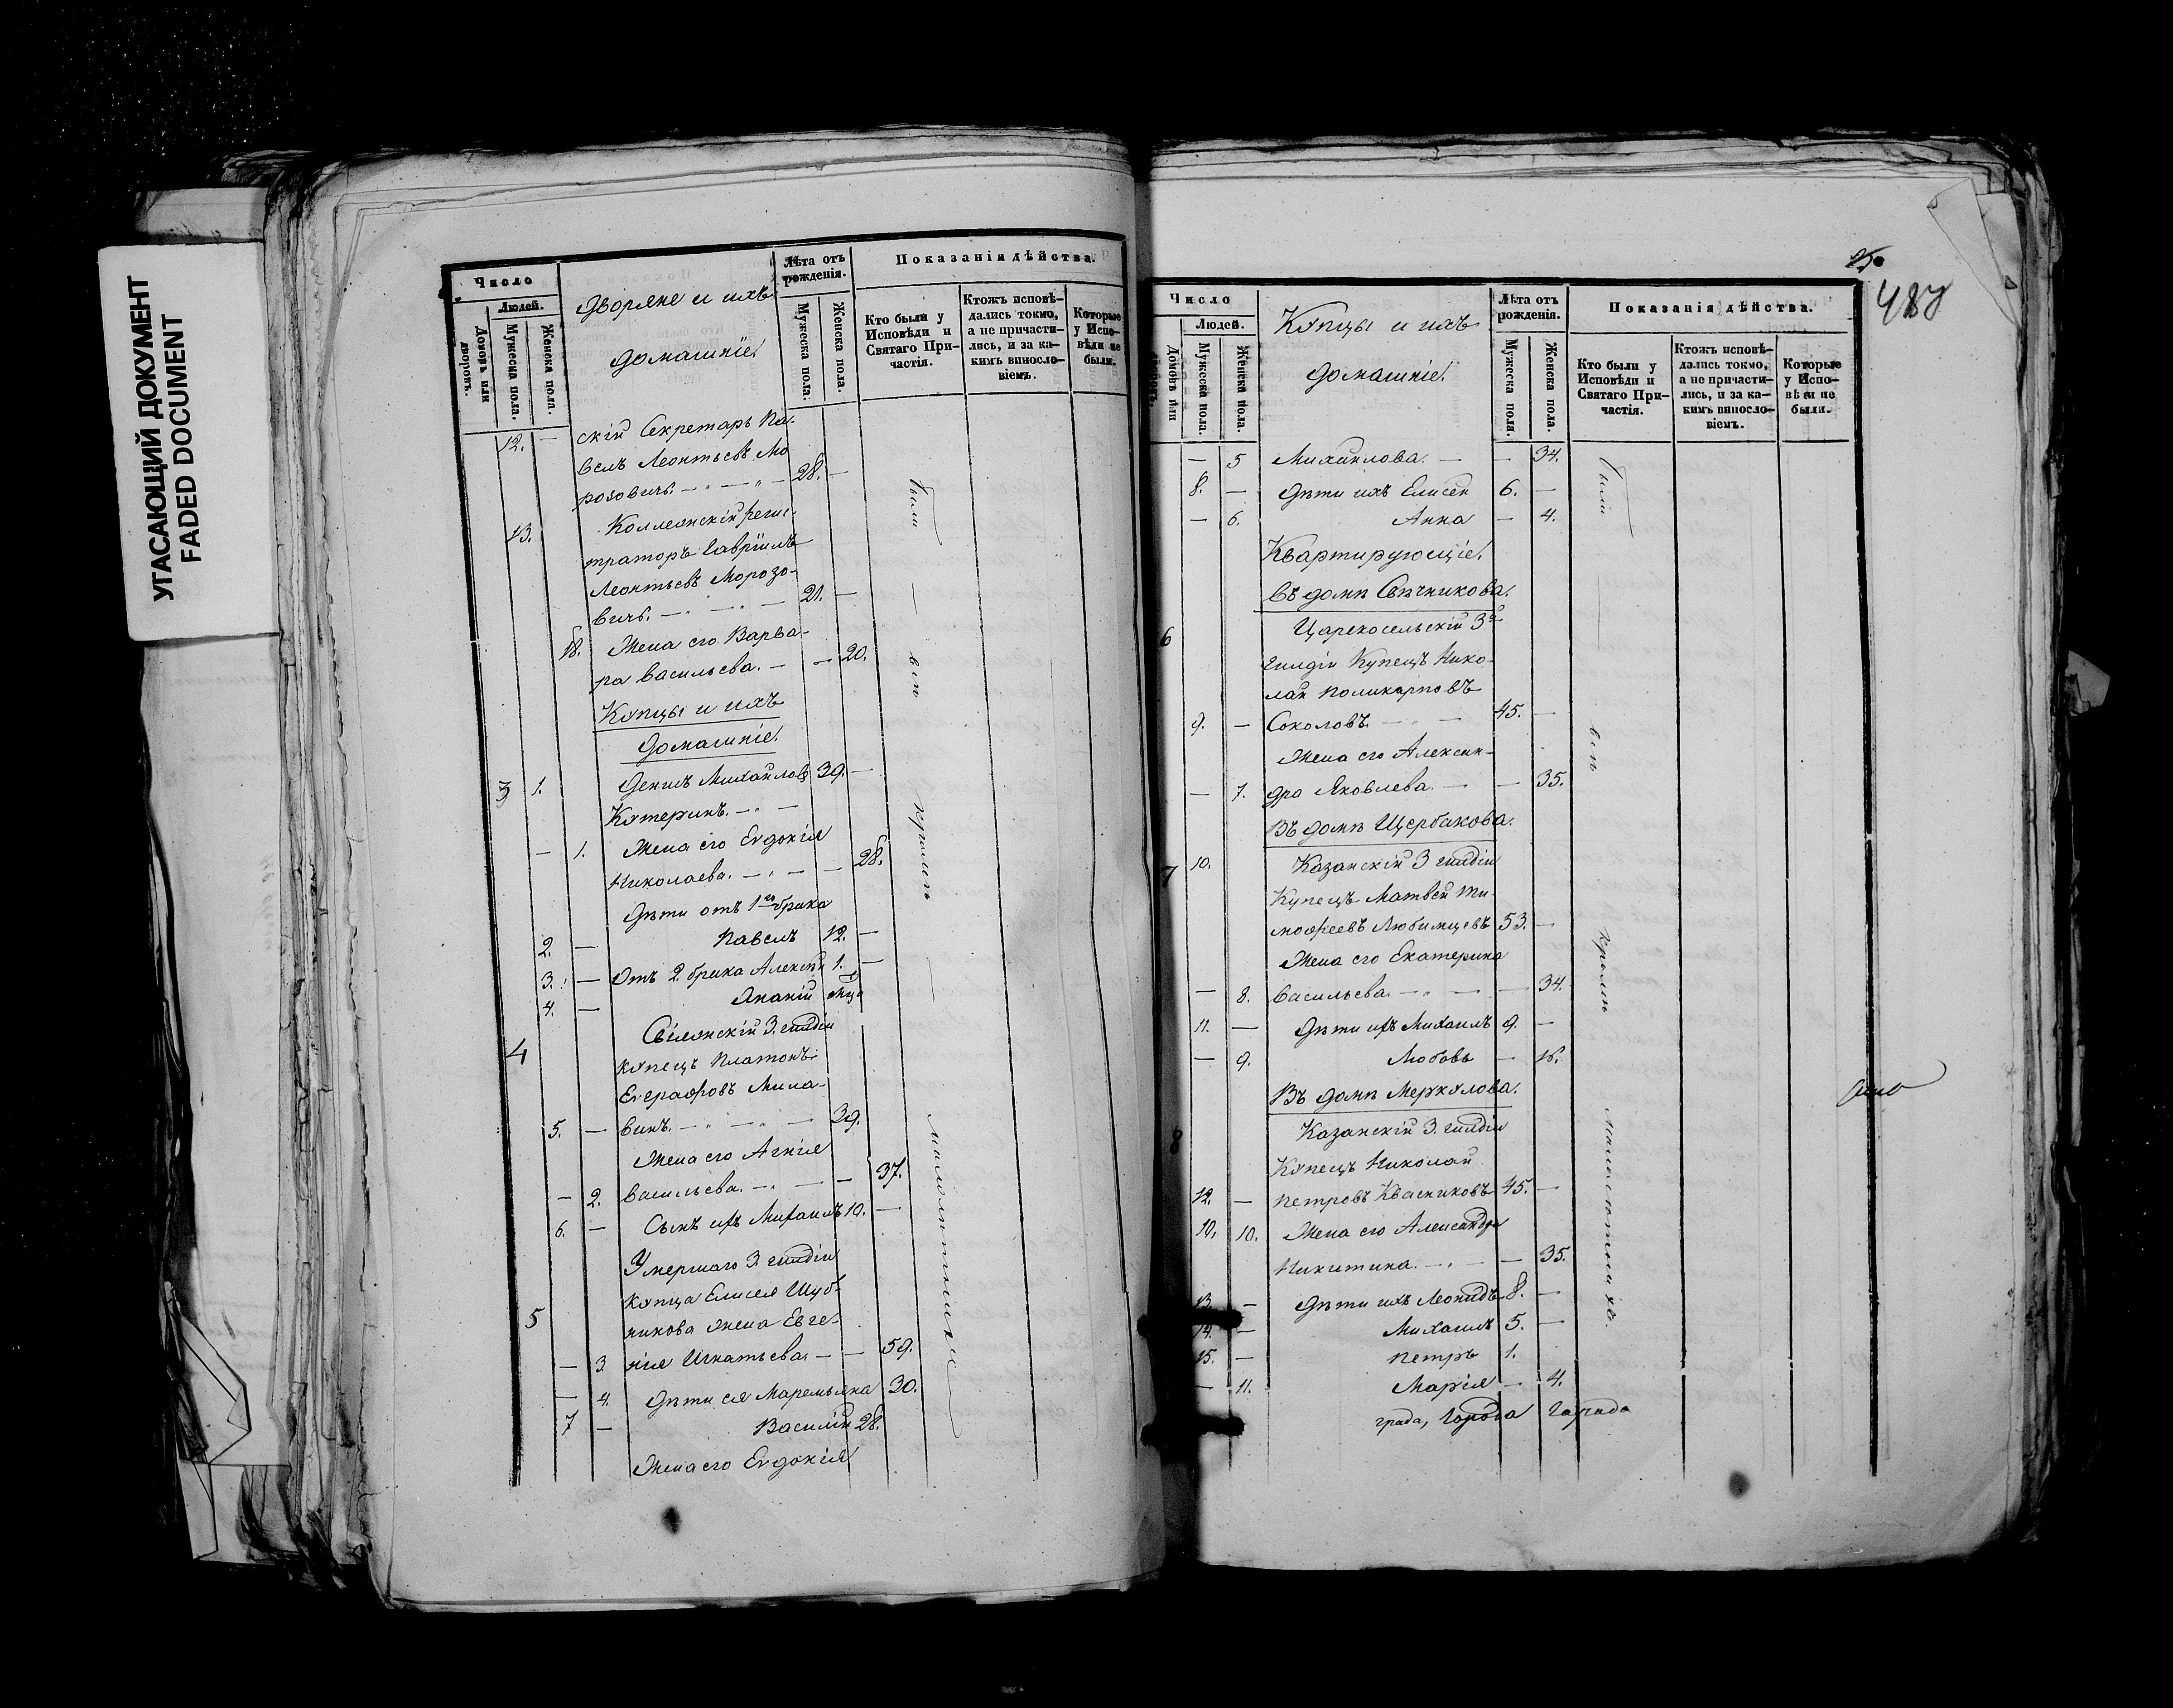 УГАСАЮЩИЙ ДОКУМЕНТ
FADED DOCUMENT
Число
Людей.
Домовъ или дворовъ.
Мужеска пола.
Женска пола.
Дворяне и ихъ
домашніе.
Лѣта отъ рожденія.
Мужеска пола.
Женска пола.
Показанія дѣйства.
Кто были у Исповѣди и Святаго Причастія.
Ктожъ исповѣдались токмо, а не причастились, и за какимъ винословіемъ.
Которые у Исповѣди не были.
12. — скій Секретарь Па-
велъ Леонтьевъ Мо
розовичъ. — 28. —
13. Коллежскій Регис-
траторъ Гавріилъ
Леонтьевъ Морозо-
вичъ. — 21. —
18. Жена его Варва-
ра Васильева. — — 20.
Купцы и ихъ
домашніе.
3 1. Денилъ Михайловъ 39. —
Катеринъ. —
— 1. Жена его Евдокія
Николаева. — — 28.
Дѣти отъ 1го брака
2. — Павелъ 12. —
3. — Отъ 2. брака Алексѣй 1. —
4. — Ананій
3. гилдіи
4 купецъ Платонъ
Евграфовъ Мила-
5. — винъ. — 39.
Жена его Агнія
— 2. Васильева. — — 37.
6. — Сынъ ихъ Михаилъ 10. —
Умершаго 3. гилдіи
купца Елисея Шуб-
5 никова жена Евге-
— 3. нія Игнатьева. — — 59.
— 4. Дѣти ея Маремьяна 30.
7 — Василій 28.
Жена его Евдокія
были — всѣ кромѣ — малолѣтнихъ
25.
487
Число
Людей.
Домовъ или дворовъ.
Мужеска пола.
Женска пола.
Купцы и ихъ
домашніе.
Лѣта отъ рожденія.
Мужеска пола.
Женска пола.
Показанія дѣйства.
Кто были у Исповѣди и Святаго Причастія.
Ктожъ исповѣдались токмо, а не причастились, и за какимъ винословіемъ.
Которые у Исповѣди не были.
— 5 Михайлова. — — 34.
8. — Дѣти ихъ Елисей 6. —
— 6. Анна — 4.
Квартирующіе.
Въ домѣ Свѣчникова.
6 Царскосельскій 3й
гилдіи Купецъ Нико-
лай Поликарповъ
9. — Соколовъ. — 45. —
Жена его Алексан-
— 7. дра Яковлева. — — 35.
Въ домѣ Щербакова.
7 10. Казанскій 3 гилдіи
Купецъ Матвей Ти-
мофеевъ Любимцевъ 53. —
Жена его Екатерина
— 8. Васильева. — — 34.
11. — Дѣти ихъ Михаилъ 9. —
— 9. Любовь — 16.
Въ домѣ Меркулова.
8 Казанскій 3. гилдіи
Купецъ Николай
12. — Петровъ Квасниковъ 45. —
10. 10. Жена его Александра
Никитина. — — 35.
13. — Дѣти ихъ Леонидъ 8. —
14. — Михаилъ 5. —
15. — Петръ 1.
— 11. Марія — 4.
града, Города Гарада
были — всѣ кромѣ малолѣтнихъ.